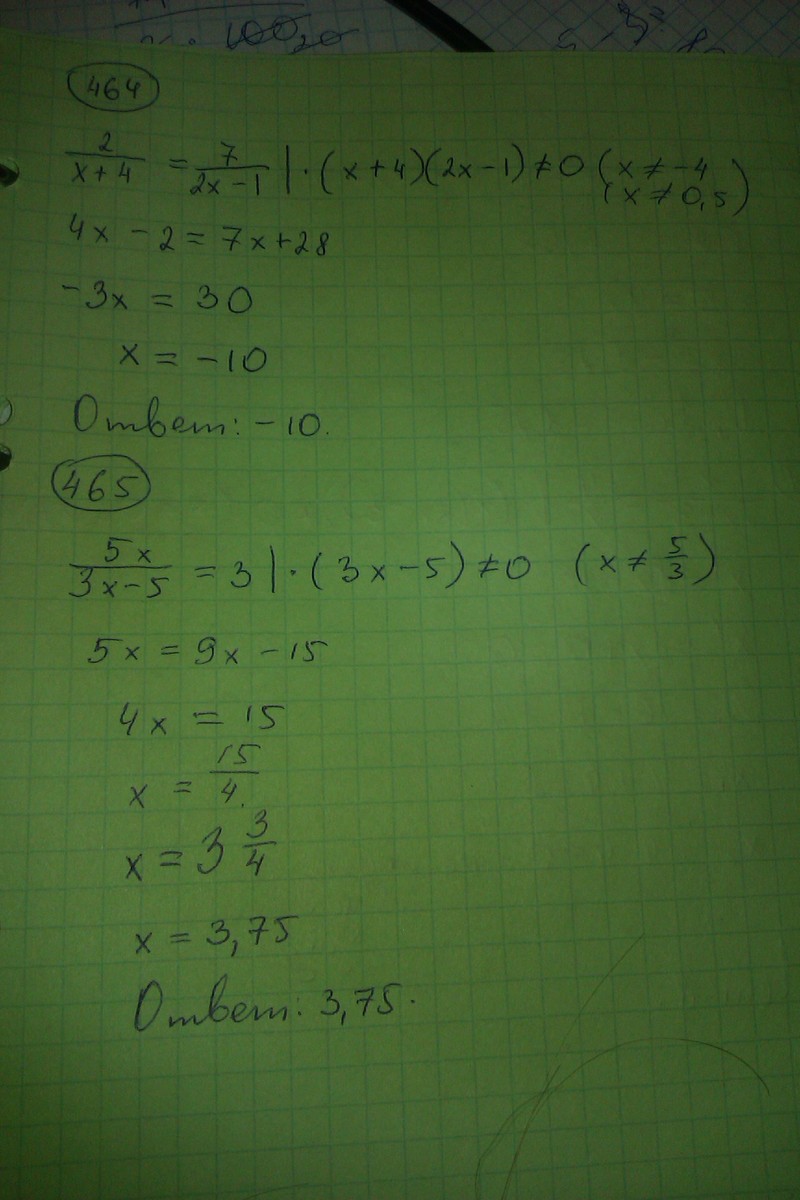 464
2/(x+4) = 7/(2x-1) | · (x+4)(2x-1) ≠ 0 (x ≠ -4
(x ≠ 0,5)
4x - 2 = 7x + 28
-3x = 30
x = -10
Ответ: -10.
465
5x/(3x-5) = 3 | · (3x-5) ≠ 0 (x ≠ 5/3)
5x = 9x - 15
4x = 15
x = 15/4
x = 3 3/4
x = 3,75
Ответ: 3,75.